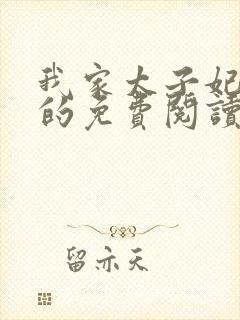 我家太子妃
的免費閱讀
留亦天